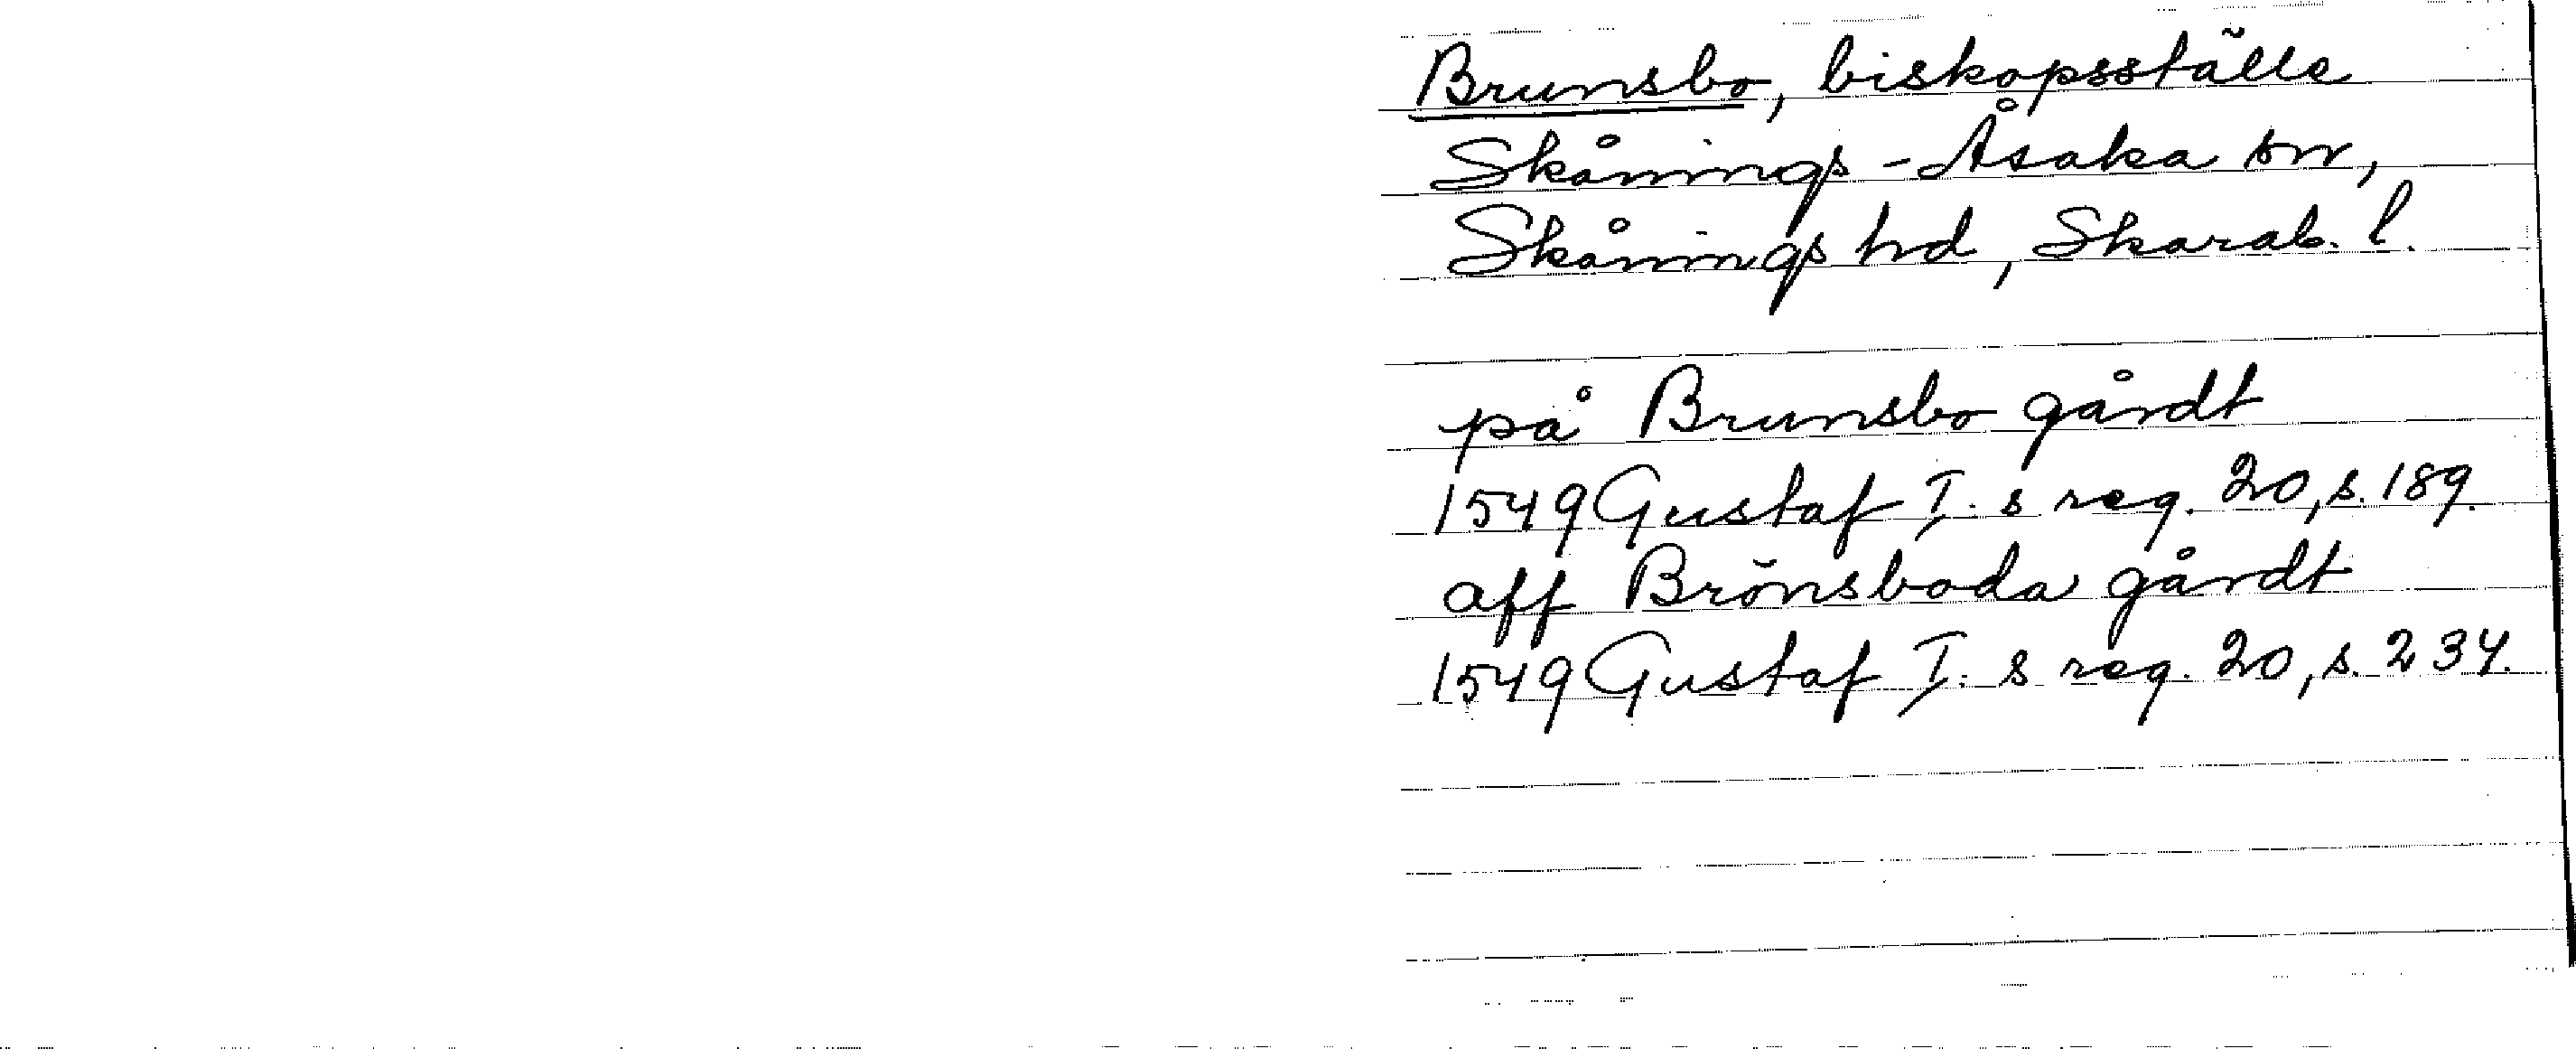 Brunsbo, biskopsställe
Skånings-Åsaka sn,
Skånings hd, Skarab. l.
på Brunsbo gårdt
1549 Gustaf I:s reg. 20, s. 189.
aff Brönsboda gårdt
1549 Gustaf I:s reg. 20, s. 234.